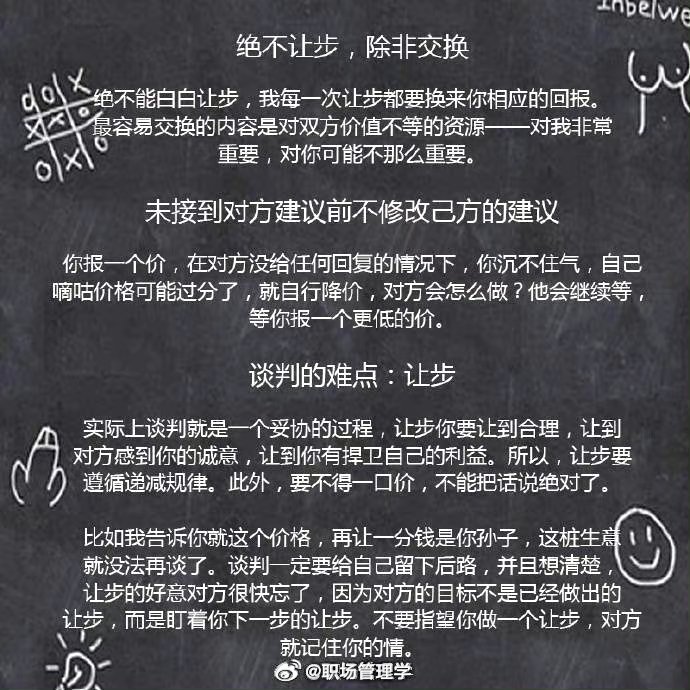 Inbelwe
绝不让步，除非交换
绝不能白白让步，我每一次让步都要换来你相应的回报。
最容易交换的内容是对双方价值不等的资源——对我非常
重要，对你可能不那么重要。
未接到对方建议前不修改己方的建议
你报一个价，在对方没给任何回复的情况下，你沉不住气，自己
嘀咕价格可能过分了，就自行降价，对方会怎么做？他会继续等，
等你报一个更低的价。
谈判的难点：让步
实际上谈判就是一个妥协的过程，让步你要让到合理，让到
对方感到你的诚意，让到你有捍卫自己的利益。所以，让步要
遵循递减规律。此外，要不得一口价，不能把话说绝对了。
比如我告诉你就这个价格，再让一分钱是你孙子，这桩生意
就没法再谈了。谈判一定要给自己留下后路，并且想清楚，
让步的好意对方很快忘了，因为对方的目标不是已经做出的
让步，而是盯着你下一步的让步。不要指望你做一个让步，对方
就记住你的情。
@职场管理学